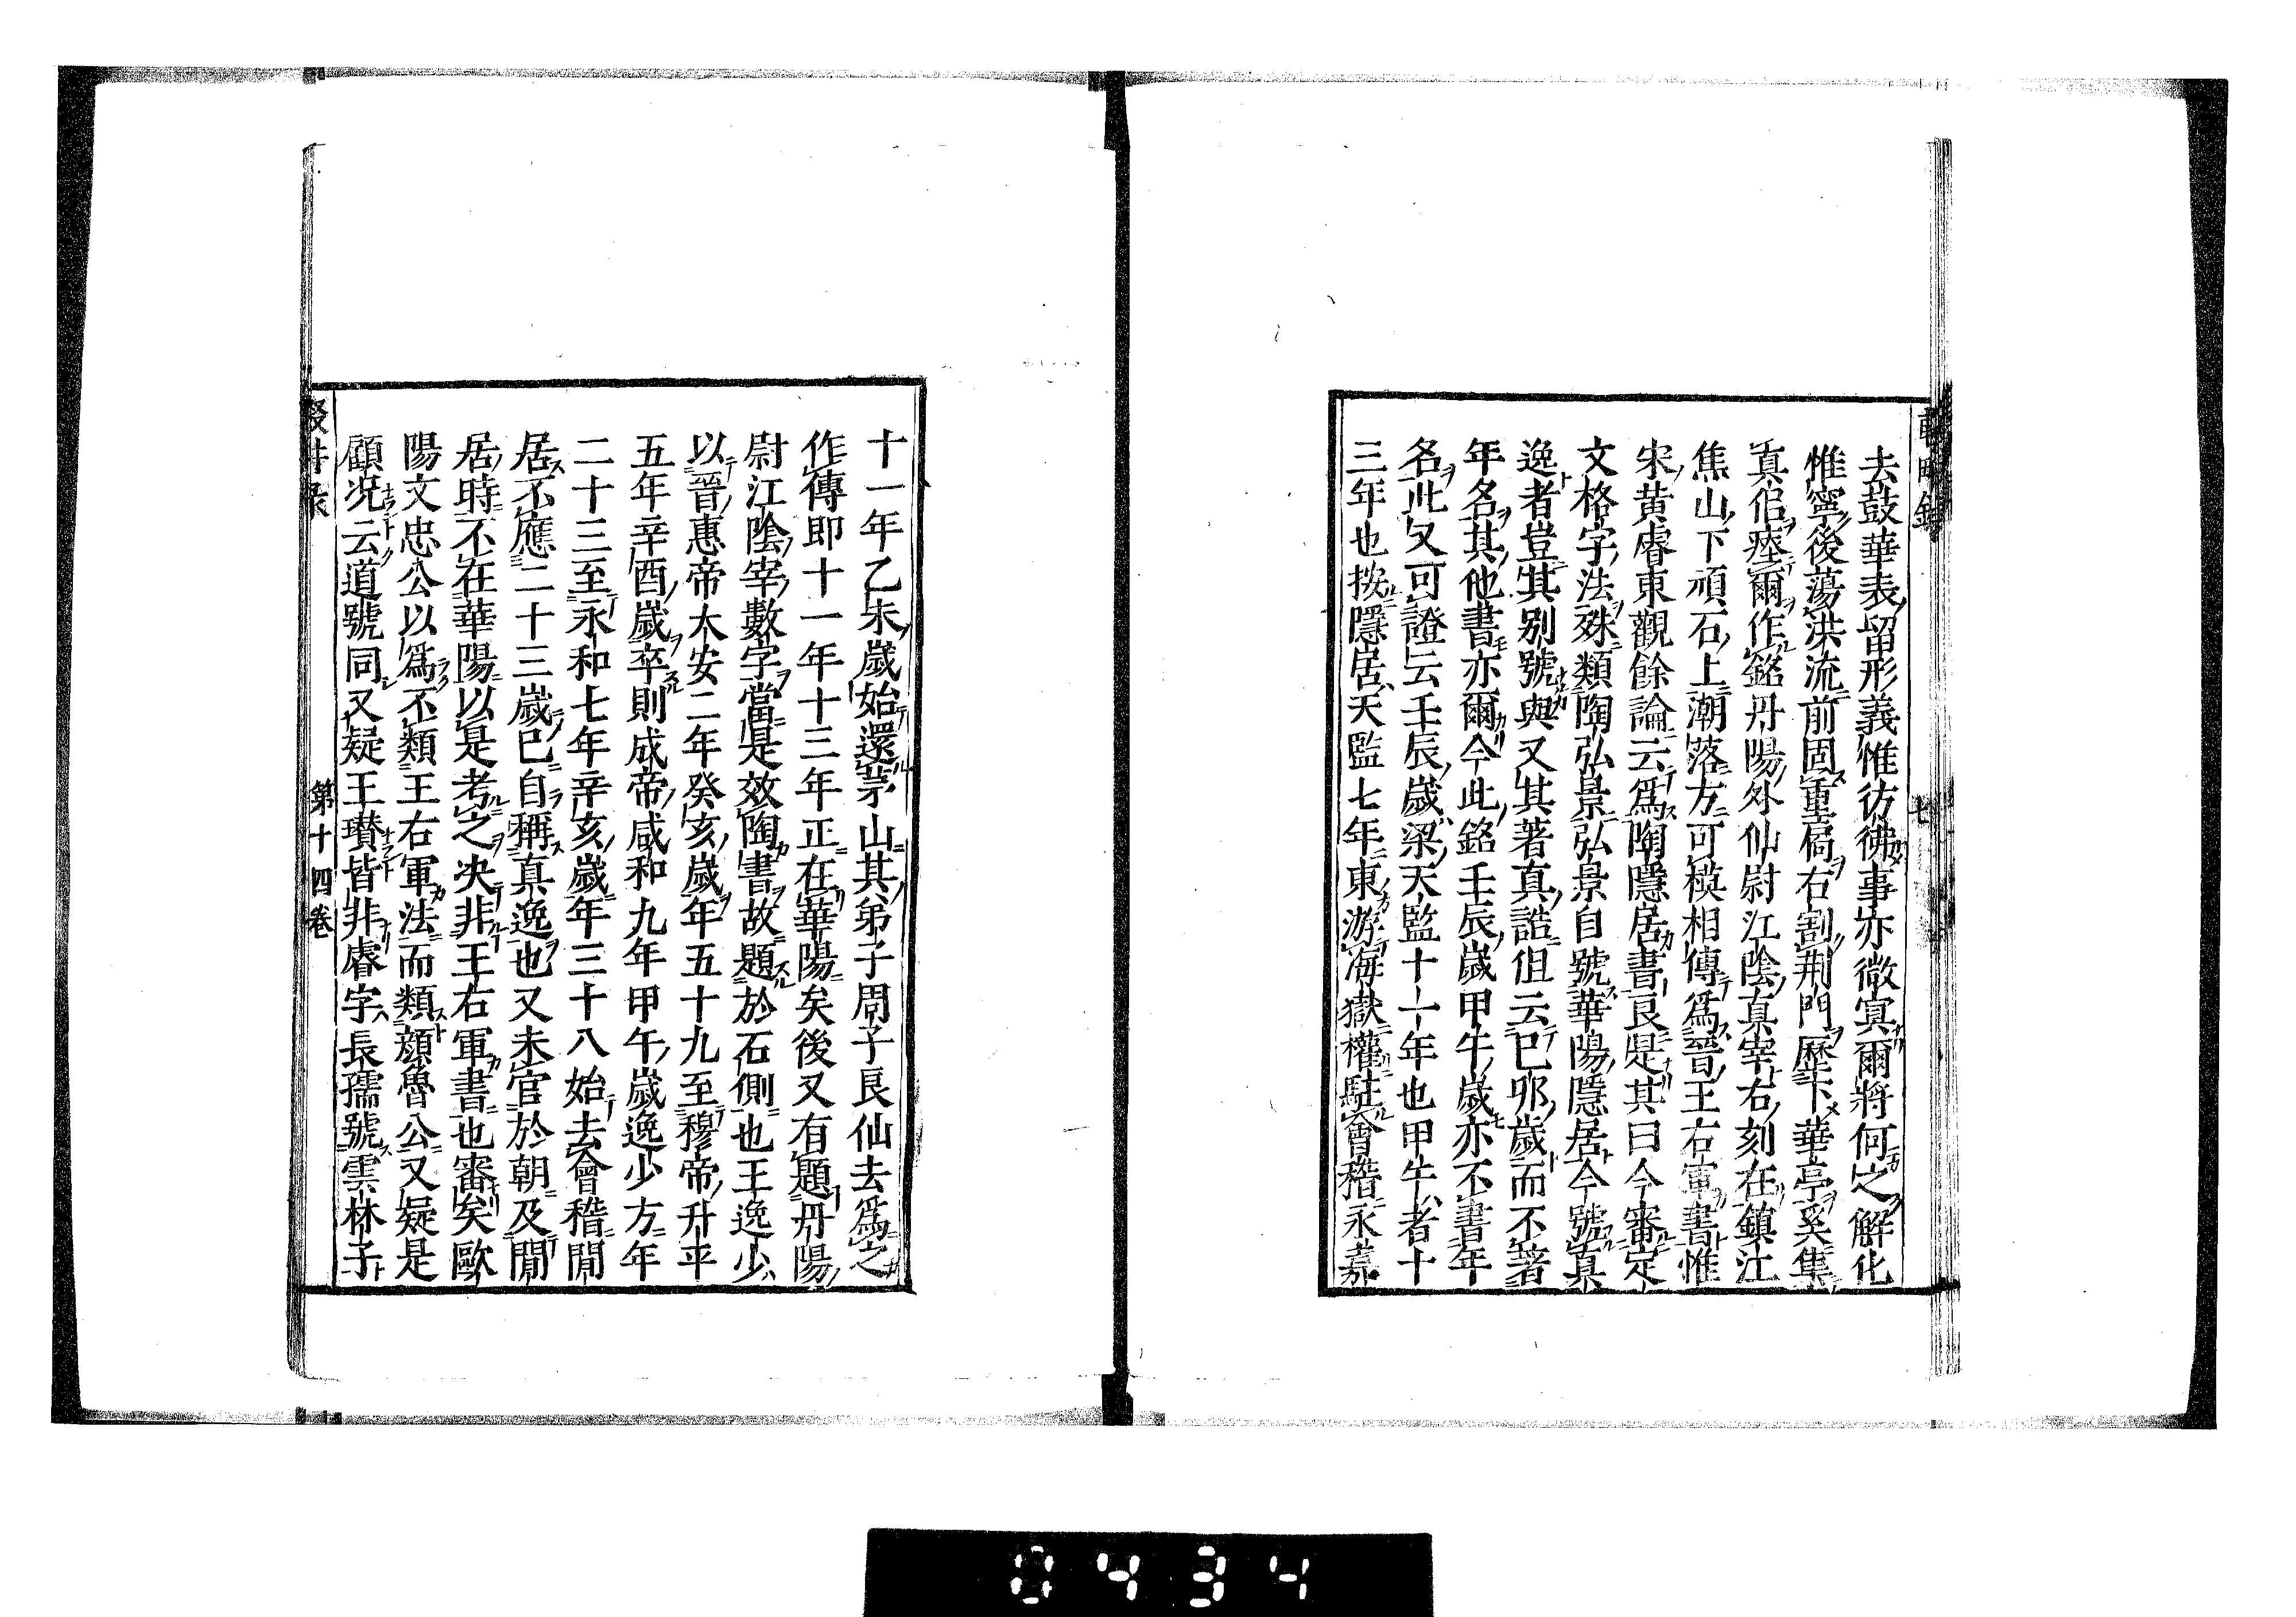 去鼓華表留形義惟彷彿事亦微冥爾將何之解化
惟寧後蕩洪流前固重扃右割荆門歷下華亭奚集
真侶瘞爾作銘丹陽外仙尉江陰真宰右刻在鎮江
焦山下頑石上潮落方可模相傳爲晉王右軍書惟
宋黃睿東觀餘論云爲陶隱居書良是其曰今審定
文格字法殊類陶弘景弘景自號華陽隱居今號真
逸者豈其别號與又其著真誥但云已卯歲而不著
年名其他書亦爾今此銘壬辰歲甲午歲亦不書年
名此又可證云壬辰歲梁天監十一年也甲午者十
三年也按隱居天監七年東游海嶽權駐會稽永嘉
十一年乙未歲始還茅山其弟子周子良仙去爲之
作傳即十一年十三年正在華陽矣後又有題丹陽
尉江陰宰數字當是效陶書故題於石側也王逸少
以晉惠帝大安二年癸亥歲年五十九至穆帝升平
五年辛酉歲卒則成帝咸和九年甲午歲逸少方年
二十三至永和七年辛亥歲年三十八始去會稽閒
居不應二十三歲已自稱真逸也又未官於朝及閒
居時不在華陽以是考之決非王右軍書也審矣歐
陽文忠公以爲不類王右軍法而類顔魯公又疑是
顧況云道號同又疑王瓚皆非睿字長孺號雲林子
第十四卷